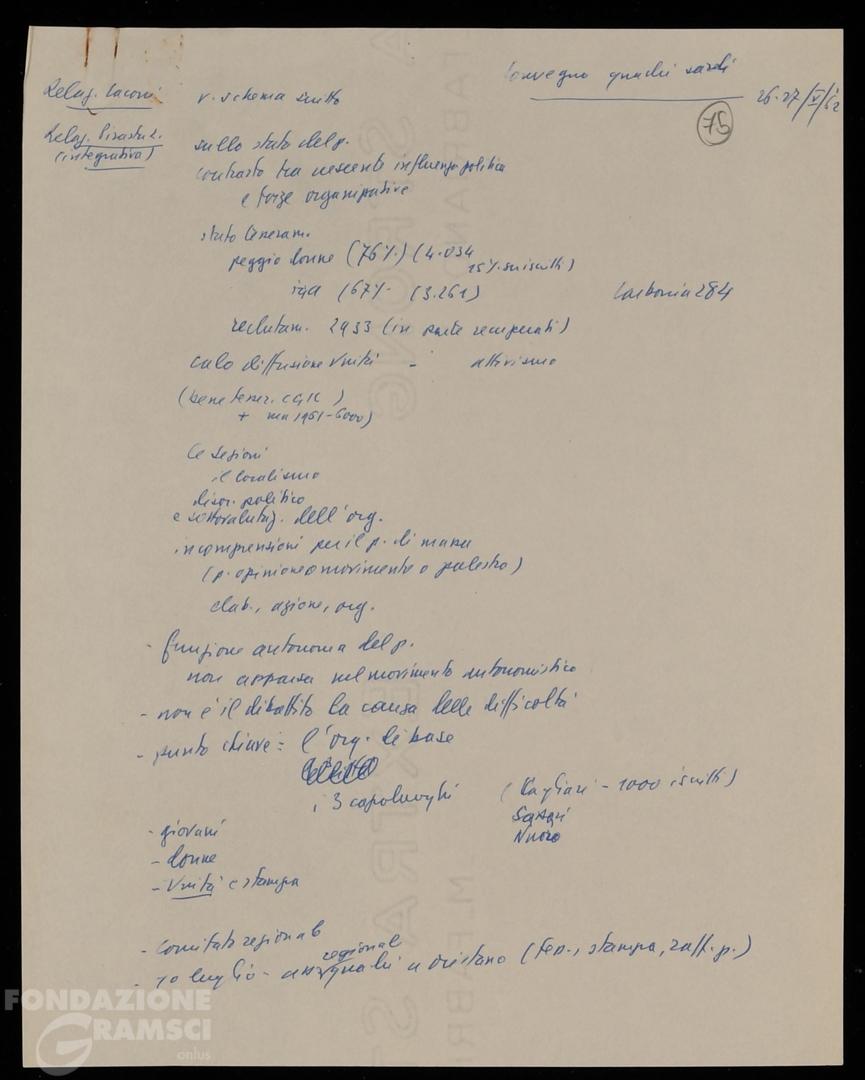 Convegno quadri sardi
26-27/V/62
75
Relaz. Laconi v. schema scritto
Relaz. Pirastu L.
(integrativa)
sullo stato del p.
contrasto tra crescente influenza politica
e forze organizzative
stato tesseram.
peggio donne (76%) (4.034
15% su iscritti)
(67% (3.261) Carbonia 284
reclutam. 2933 (in parte recuperati)
calo diffusione Unità - attivismo
(bene tesser. CGIL)
+ 1961 - 6000)
le sezioni
il localismo
disor. politico
e sottovalutaz. dell'org.
incomprensioni per il p. di massa
(p. opinione o movimento o)
elab., azione, org.
- funzione autonoma del p.
non appare nel movimento autonomistico
- non è il dibattito la causa delle difficoltà
- punto chiave: l'org. di base
i 3 capoluoghi (Cagliari - 1000 iscritti)
Sassari
Nuoro
- giovani
- donne
- Unità e stampa
- comitato regionale
regionale
- 10 luglio - a Oristano (tess., stampa, raff. p.)
FONDAZIONE
GRAMSCI
onlus